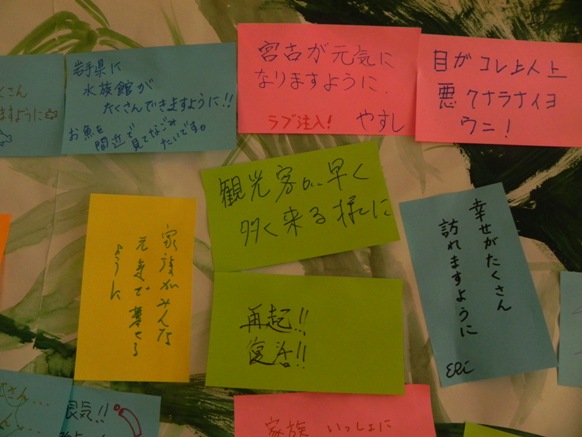 岩手県に
水族館が
たくさんできますように!!
お魚を
間近で
見てなごみ
たいです。
宮古が元気に
なりますように
ラブ注入!
やすし
目がコレ以上
悪クナラナイヨ
ウニ!
観光客が早く
多く来る様に
家族がみんな
元気で暮せる
ように
再起!!
復活!!
幸せがたくさん
訪れますように
Eri
家族 いっしょに